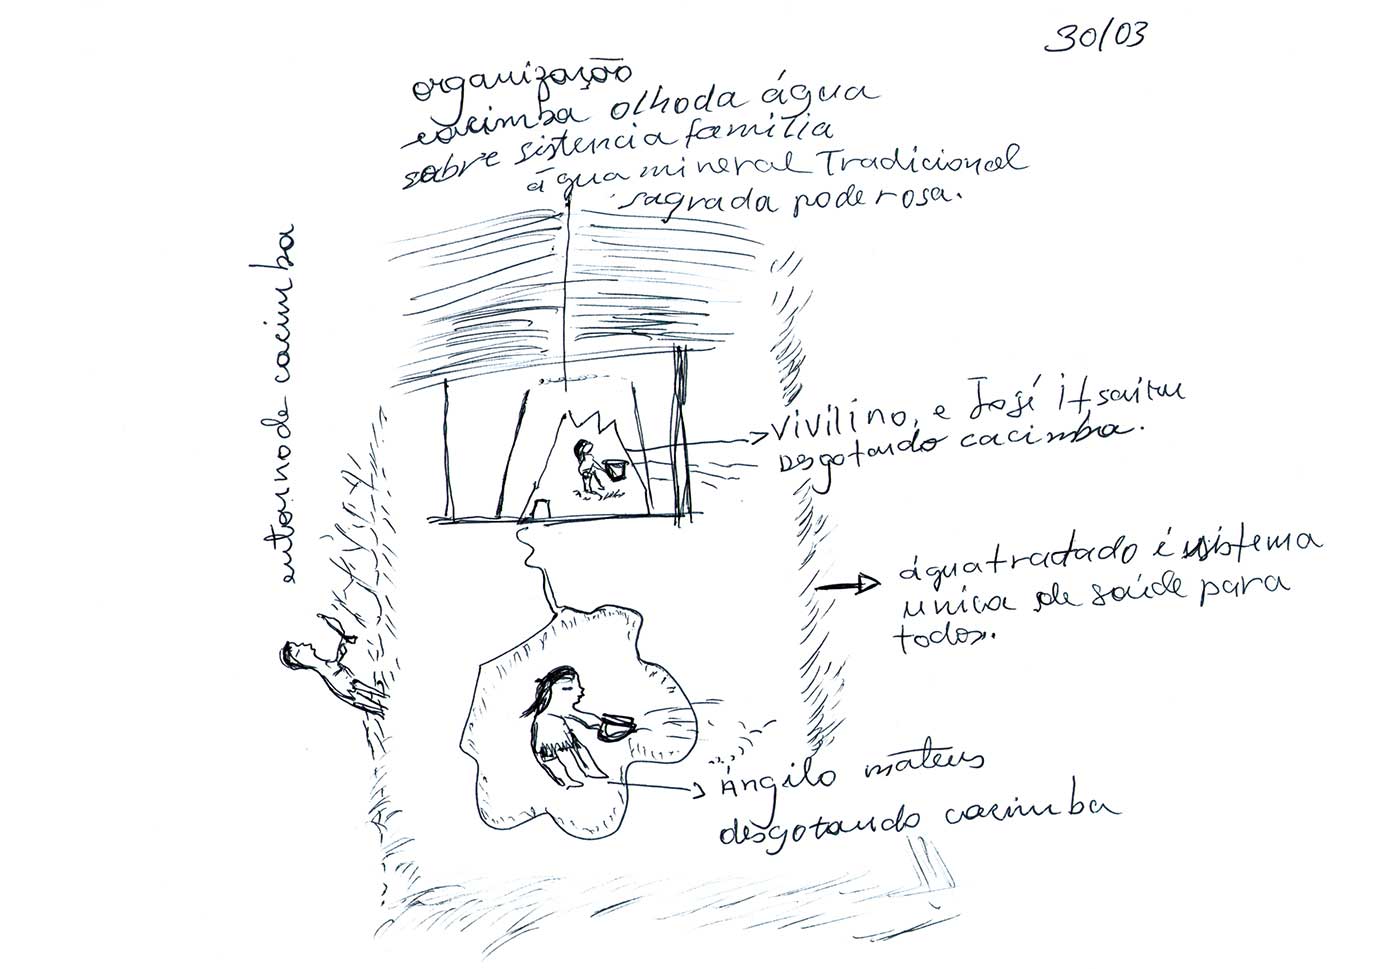 30/03
organização
cacimba olhoda água
sobre sistencia família
água mineral Tradicional
sagrada poderosa.
entorno de cacimba
vivilino, e José
desgotando cacimba.
água tratado é sistema
unica de saúde para
todos.
Ángilo mateus
desgotando cacimba